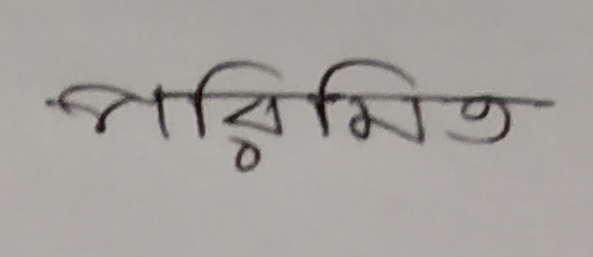 পরিমিত